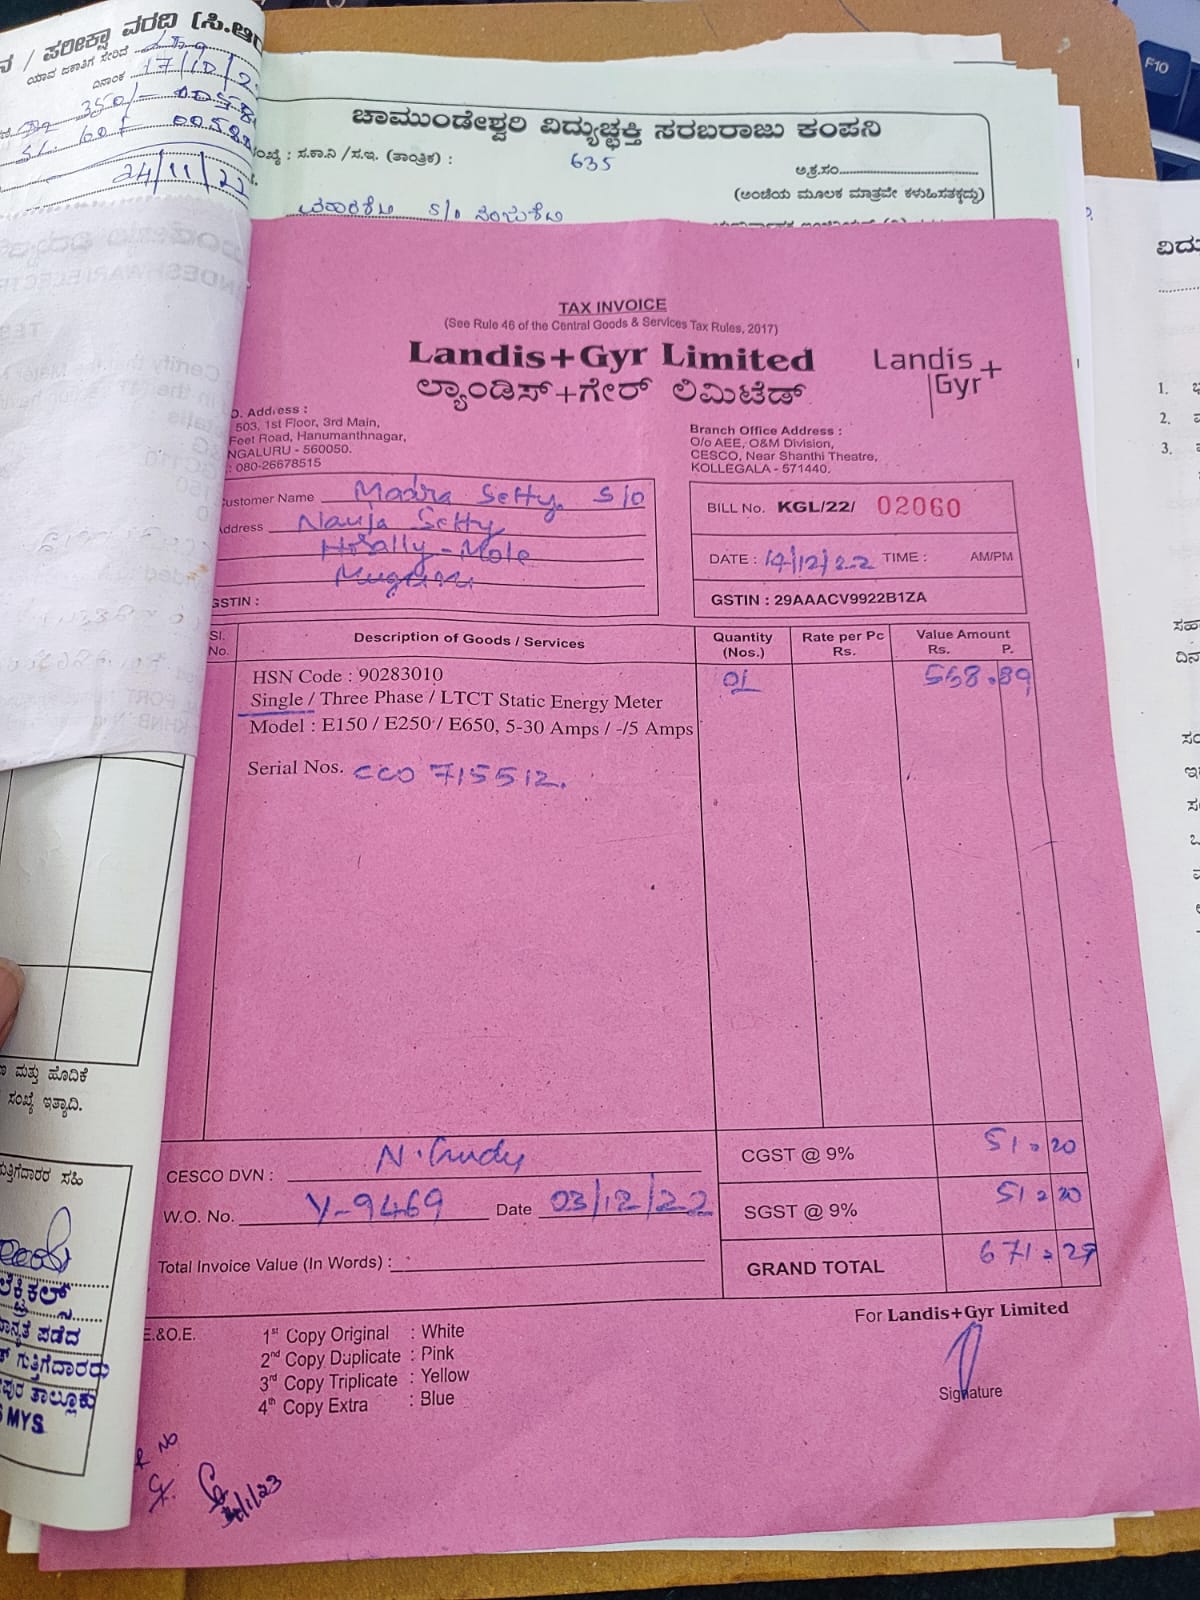 ಪರೀಕ್ಷಾ ವರದಿ
17/10/2
350/-
24/11/22
F10
ಚಾಮುಂಡೇಶ್ವರಿ ವಿದ್ಯುಚ್ಛಕ್ತಿ ಸರಬರಾಜು ಕಂಪನಿ
ಸಂಖ್ಯೆ : ಸ.ಕಾ.ನಿ /ಸ.ಇ. (ತಾಂತ್ರಿಕ) : 635
ಅ.ಕ್ರ.ಸಂ
(ಅಂಚೆಯ ಮೂಲಕ ಮಾತ್ರವೇ ಕಳುಹಿಸತಕ್ಕದ್ದು)
TAX INVOICE
(See Rule 46 of the Central Goods & Services Tax Rules, 2017)
Landis+Gyr Limited
ಲ್ಯಾಂಡಿಸ್+ಗೇರ್ ಲಿಮಿಟೆಡ್
Landis+
Gyr
O. Address :
503, 1st Floor, 3rd Main,
Feet Road, Hanumanthnagar,
NGALURU - 560050.
: 080-26678515
Branch Office Address :
O/o AEE, O&M Division,
CESCO, Near Shanthi Theatre,
KOLLEGALA - 571440.
Customer Name Madra Setty. S/o
Address Setty
GSTIN :
BILL No. KGL/22/ 02060
DATE : 14/12/22 TIME : AM/PM
GSTIN : 29AAACV9922B1ZA
Sl. No. Description of Goods / Services Quantity (Nos.) Rate per Pc Rs. Value Amount Rs. P.
HSN Code : 90283010 01 568.89
Single / Three Phase / LTCT Static Energy Meter
Model : E150 / E250 / E650, 5-30 Amps / -/5 Amps
Serial Nos. CCO 715512.
CESCO DVN :
W.O. No. Y-9469 Date 03/12/22
Total Invoice Value (In Words) :
CGST @ 9% 51.20
SGST @ 9% 51.20
GRAND TOTAL 671.29
For Landis+Gyr Limited
Signature
E.&O.E.
1st Copy Original : White
2nd Copy Duplicate : Pink
3rd Copy Triplicate : Yellow
4th Copy Extra : Blue
ಮತ್ತು ಹೊದಿಕೆ
ಸಂಖ್ಯೆ ಇತ್ಯಾದಿ.
ಸಹಿ
ಪಡೆದ
ಗುತ್ತಿಗೆದಾರರು
ತಾಲ್ಲೂಕು
MYS
1.
2.
3.